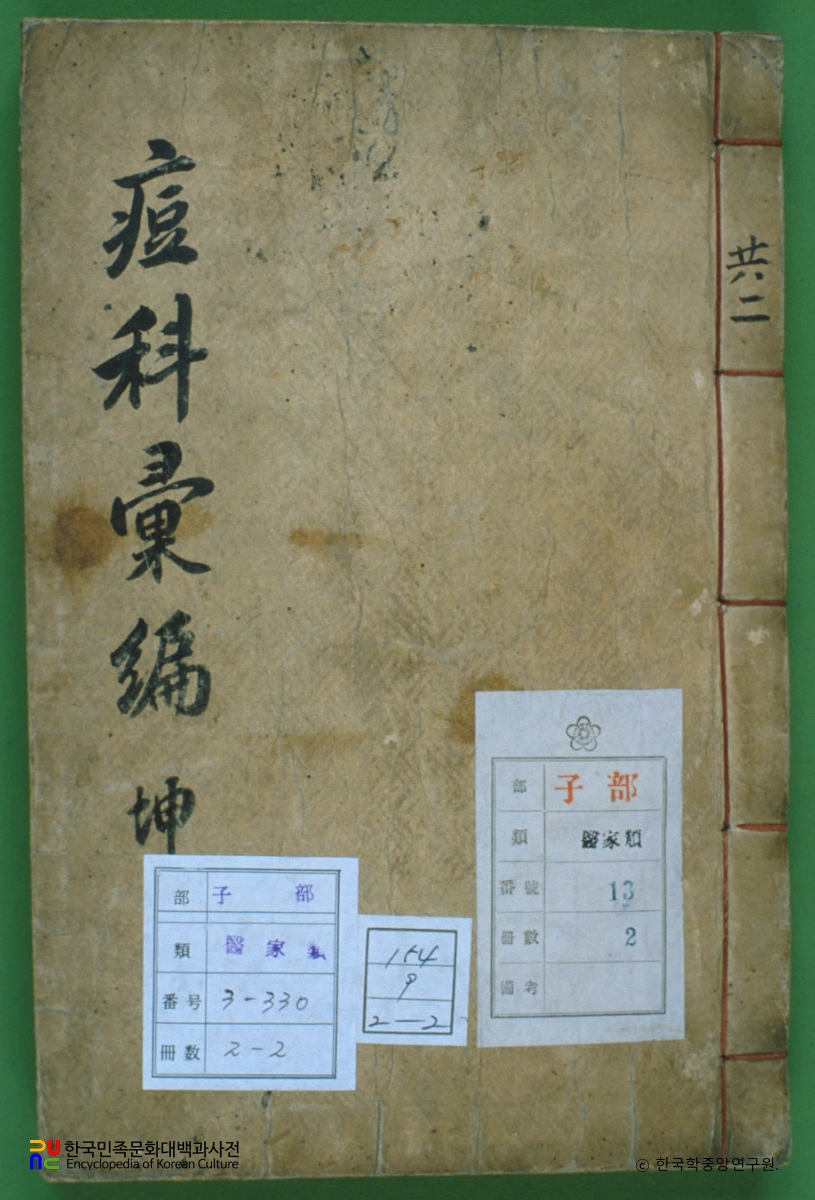 痘科彙編 坤
共二
部 子部
類 醫家類
番號 13
冊數 2
備考
部 子部
類 醫家類
番号 3-330
冊数 2-2
154
9
2-2
한국민족문화대백과사전
Encyclopedia of Korean Culture
© 한국학중앙연구원.